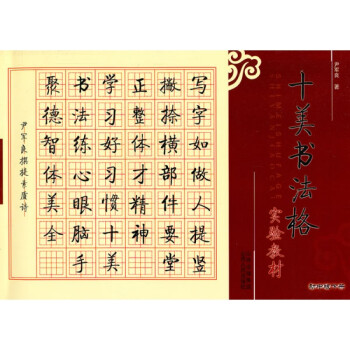 写字如做人提竖
撇捺横部件要堂
正整体才精神
学习好习惯十美
书法练心眼脑手
聚德智体美全
尹军良 著
十美书法格
实验教材